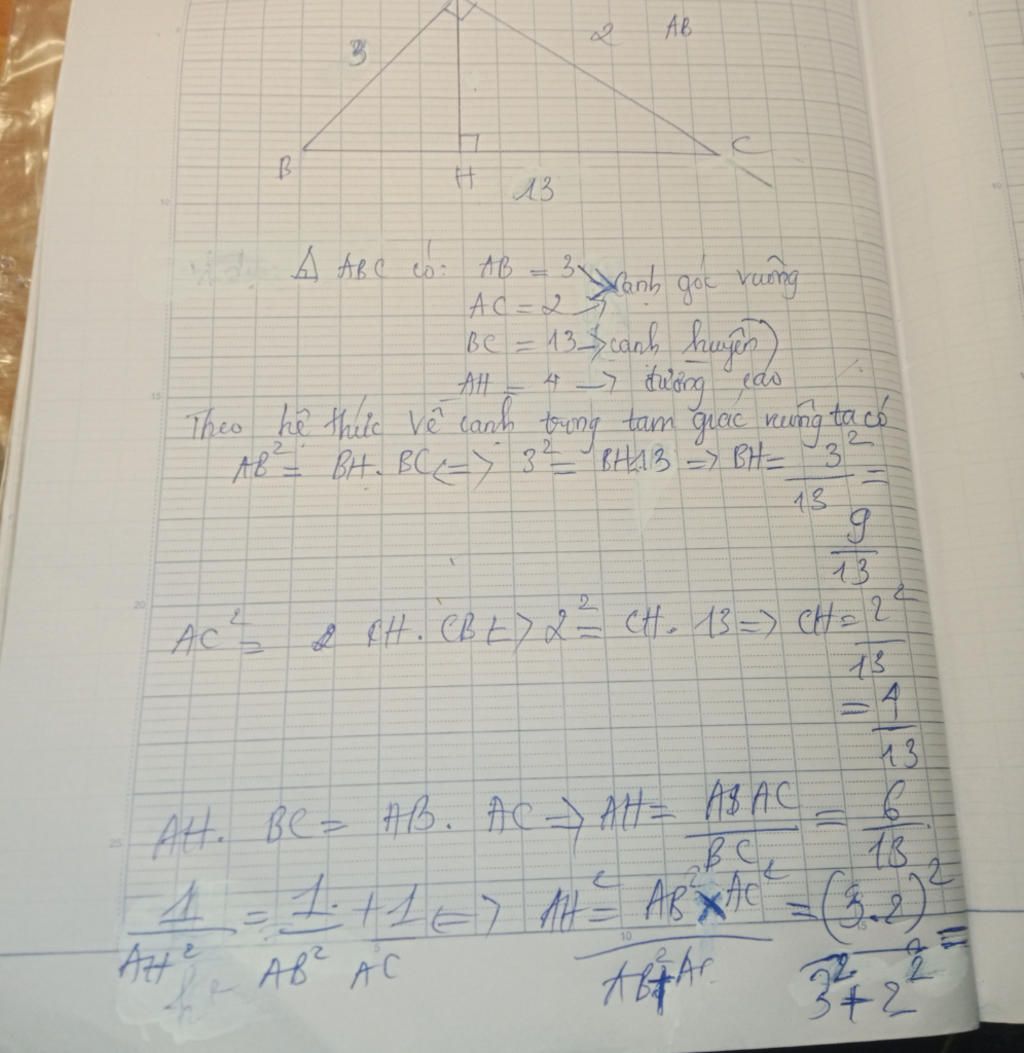 3 2 AB
B H C
13
Δ ABC có: AB = 3 → cạnh góc vuông
AC = 2 →
BC = 13 → cạnh huyền
AH = 4 → đường cao
Theo hệ thức về cạnh trong tam giác vuông ta có
AB² = BH . BC <=> 3² = BH.13 => BH = 3²/13 =
9/13
AC² = CH . CB <=> 2² = CH . 13 => CH = 2²/13
= 4/13
AH . BC = AB . AC => AH = AB AC/BC = 6/13
1/AH² = 1/AB² + 1/AC <=> AH² = AB² x AC²/AB² + AC = (3.2)²/3² + 2² =